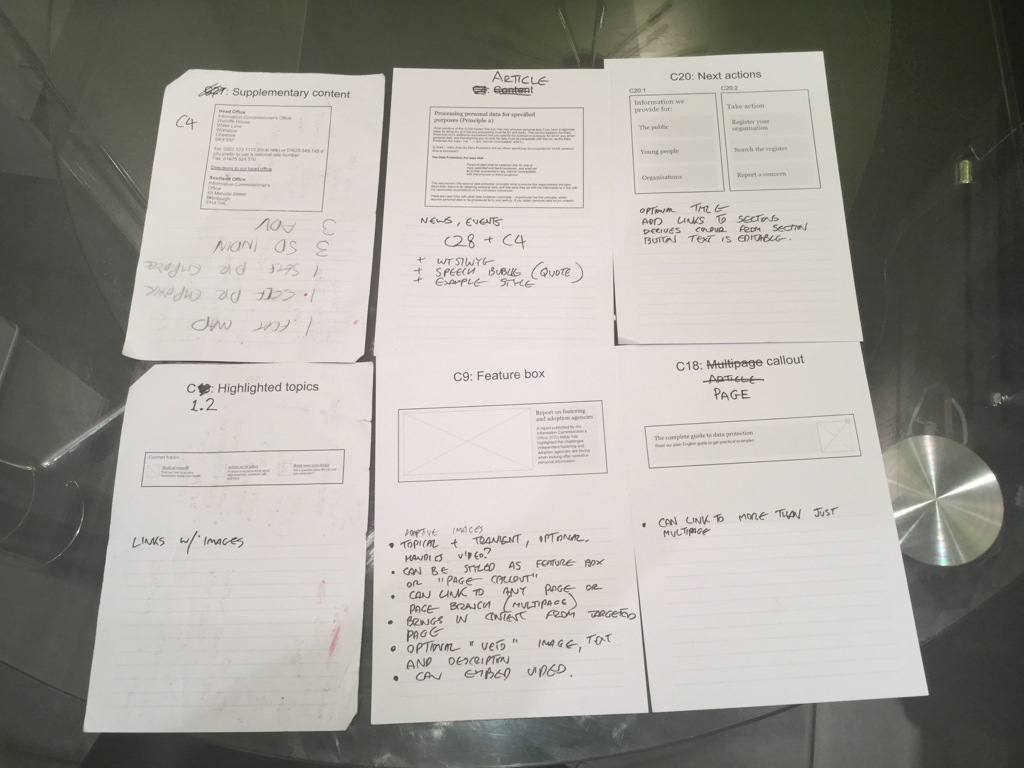 : Supplementary content
C4
Head Office
Information Commissioner's Office
Wycliffe House
Water Lane
Wilmslow
Cheshire
SK9 5AF
Tel: 0303 123 1113 (local rate) or 01625 545 745 if
you prefer to use a national rate number
Fax: 01625 524 510
Directions to our head office
Scotland Office
Information Commissioner's
Office
45 Melville Street
Edinburgh
EH3 7HL
3 ADV
3 SD INDIV
1 SELF DIR EMPLOYEE
1 SELF DIR EMPLOYEE
1 MAP
ARTICLE
: Content
Processing personal data for specified
purposes (Principle 2)
The Data Protection Act says that:
NEWS, EVENTS
C28 + C4
+ WYSIWYG
+ SPEECH BUBBLE (QUOTE)
+ EXAMPLE STYLE
C20: Next actions
C20:1
Information we
provide for:
The public
Young people
Organisations
C20:2
Take action
Register your
organisation
Search the register
Report a concern
OPTIONAL TITLE
ADD LINKS TO SECTIONS
DERIVES COLOUR FROM SECTION
BUTTON TEXT IS EDITABLE.
C : Highlighted topics
1.2
Current topics
LINKS W/ IMAGES
C9: Feature box
Report on fostering
and adoption agencies
A report published by the
Information Commissioner's
Office (ICO) today has
highlighted the challenges
independent fostering and
adoption agencies are facing
when looking after sensitive
personal information.
ADAPTIVE IMAGES
• TOPICAL + TRANSIENT, OPTIONAL.
HANDLES VIDEO?
• CAN BE STYLED AS FEATURE BOX
OR "PAGE CALLOUT"
• CAN LINK TO ANY PAGE OR
PAGE BRANCH (MULTIPAGE)
• BRINGS IN CONTENT FROM TARGETED
PAGE
• OPTIONAL "VETO" IMAGE, TEXT
AND DESCRIPTION
• CAN EMBED VIDEO.
C18: Multipage callout
ARTICLE
PAGE
The complete guide to data protection
Read our plain English guide to get practical examples.
• CAN LINK TO MORE THAN JUST
MULTIPAGE